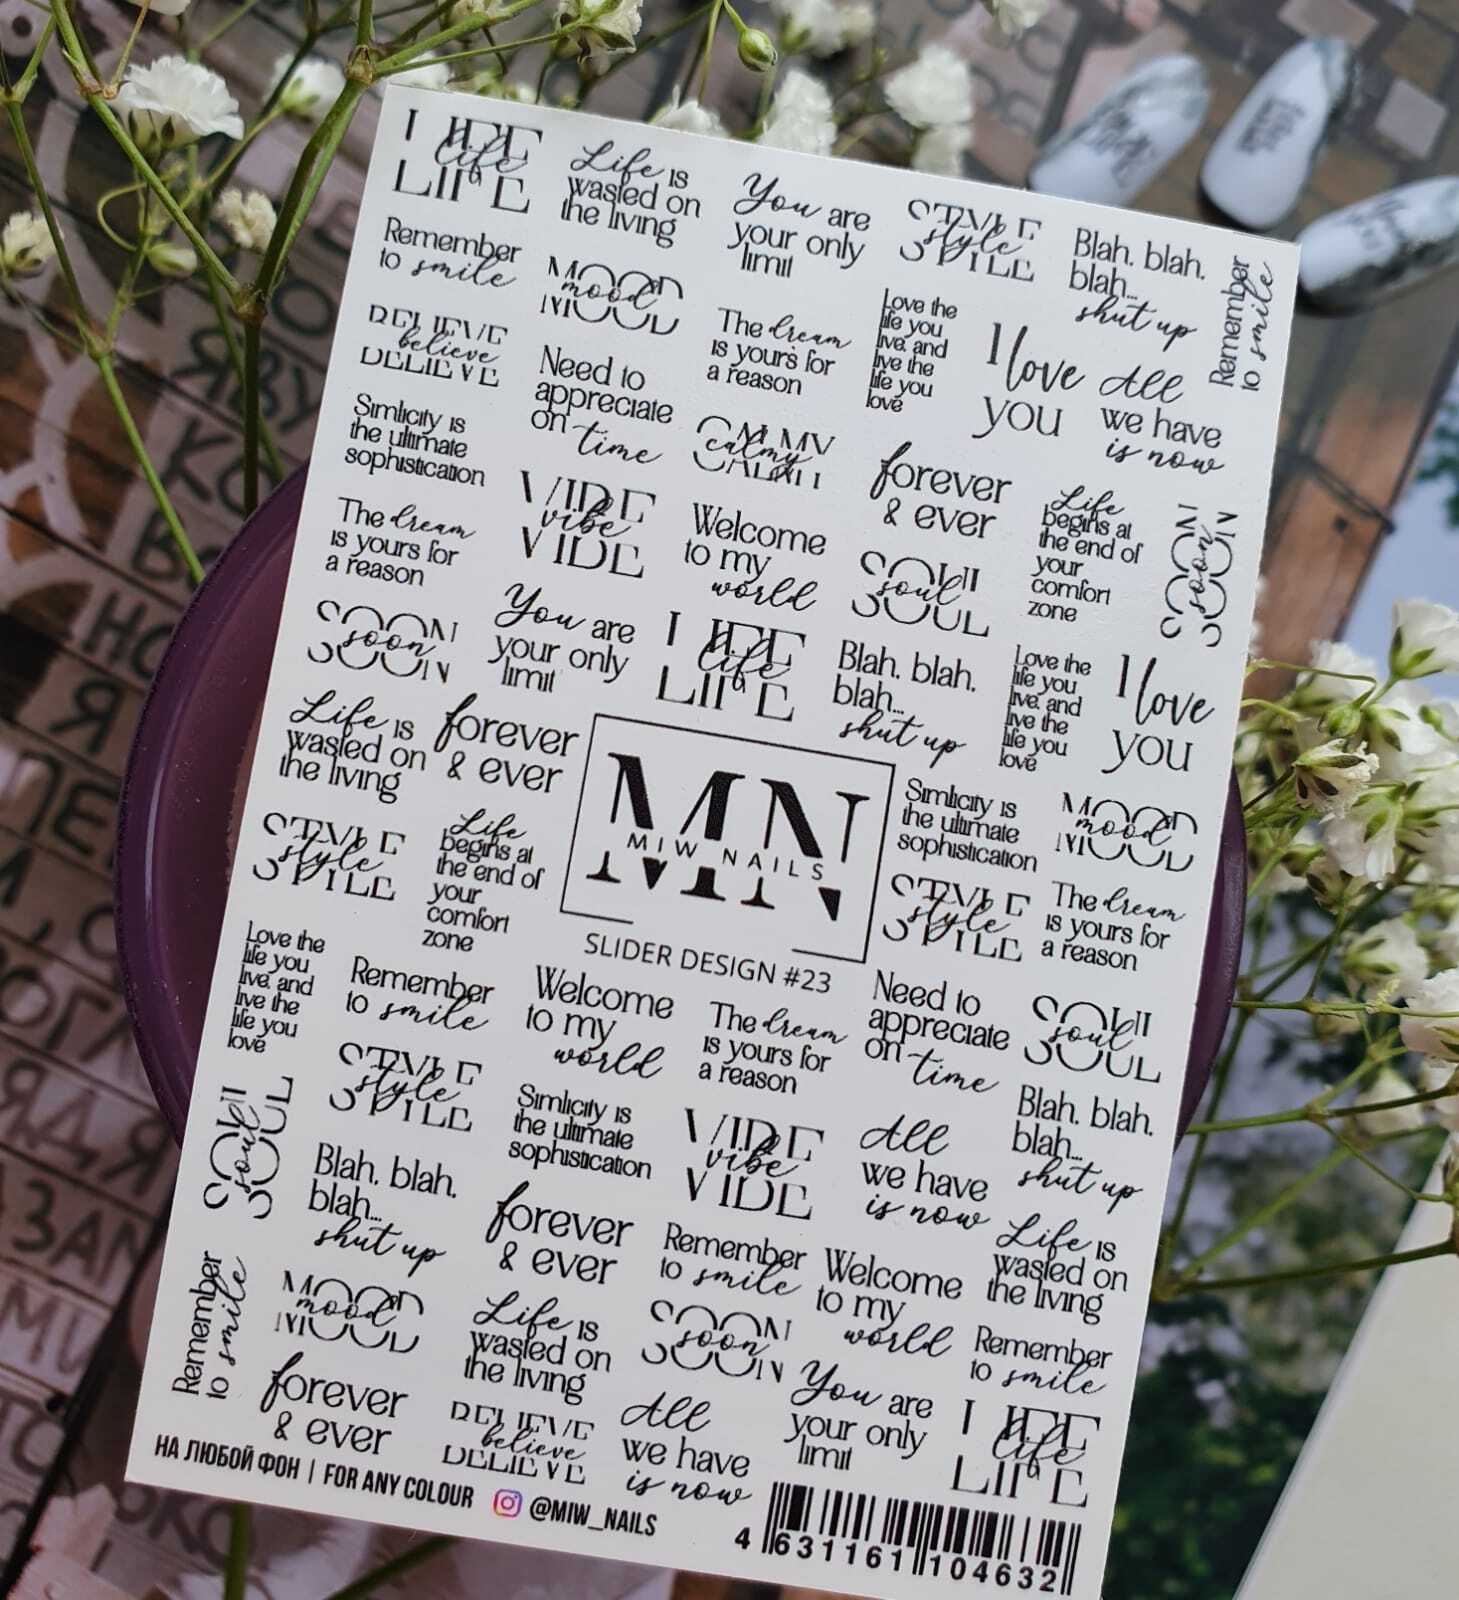 LIFE
life
LIFE
Life is
wasted on
the living
You are
your only
limit
STYLE
style
STYLE
Blah. blah.
blah...
shut up
Remember
to smile
Remember
to smile
MOOD
mood
MOOD
The dream
is yours for
a reason
Love the
life you
live. and
live the
life you
love
I love
you
All
we have
is now
BELIEVE
believe
BELIEVE
Need to
appreciate
on time
CALMY
calmy
CALMY
forever
& ever
Life
begins at
the end of
your
comfort
zone
SOON
soon
SOON
Simlicity is
the ultimate
sophistication
VIBE
vibe
VIBE
Welcome
to my
world
SOUL
soul
SOUL
The dream
is yours for
a reason
SOON
soon
SOON
You are
your only
limit
LIFE
life
LIFE
Blah. blah.
blah...
shut up
Love the
life you
live. and
live the
life you
love
I love
you
Life is
wasted on
the living
forever
& ever
MN
MIW NAILS
MN
SLIDER DESIGN #23
Simlicity is
the ultimate
sophistication
MOOD
mood
MOOD
STYLE
style
STYLE
Life
begins at
the end of
your
comfort
zone
STYLE
style
STYLE
The dream
is yours for
a reason
Love the
life you
live. and
live the
life you
love
Remember
to smile
Welcome
to my
world
The dream
is yours for
a reason
Need to
appreciate
on time
SOUL
soul
SOUL
SOUL
soul
SOUL
STYLE
style
STYLE
Simlicity is
the ultimate
sophistication
VIBE
vibe
VIBE
All
we have
is now
Blah. blah.
blah...
shut up
Blah. blah.
blah...
shut up
forever
& ever
Remember
to smile
Welcome
to my
world
Life is
wasted on
the living
Remember
to smile
MOOD
mood
MOOD
Life is
wasted on
the living
SOON
soon
SOON
You are
your only
limit
Remember
to smile
forever
& ever
BELIEVE
believe
BELIEVE
All
we have
is now
LIFE
life
LIFE
НА ЛЮБОЙ ФОН | FOR ANY COLOUR @MIW_NAILS
4 631161 104632